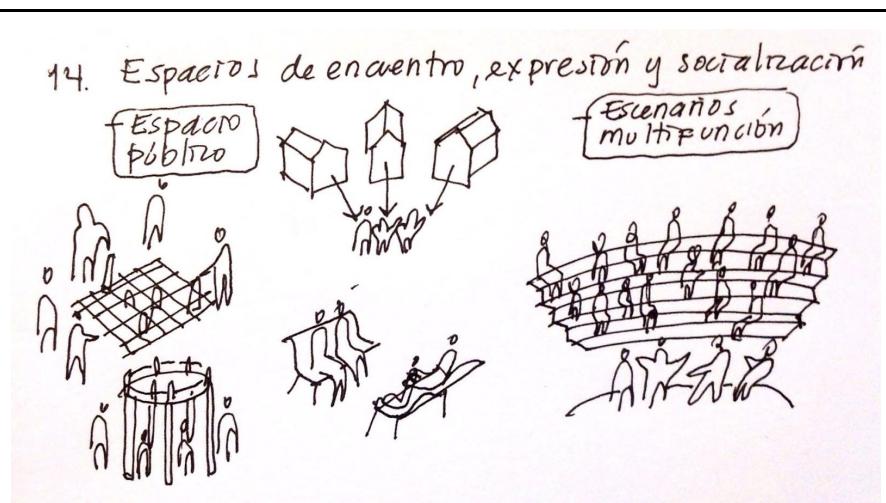 14. Espacios de encuentro, expresión y socialización
Espacio
público
Escenarios
multifunción